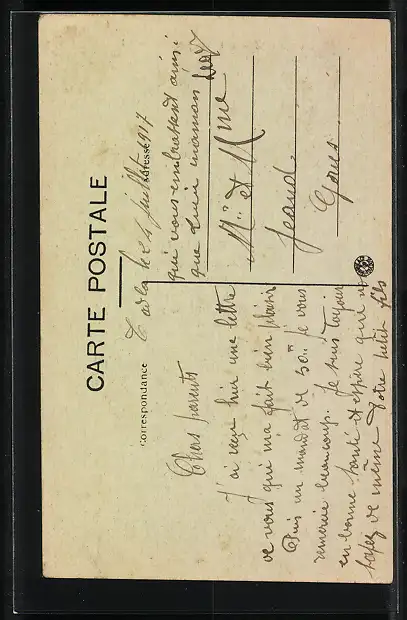 CARTE POSTALE
Correspondance
Adresse
le 4 juillet 1917
Chers parents
J'ai reçu hier une lettre
de vous qui m'a fait bien plaisir
Puis un mandat de 50 je vous
remercie beaucoup. Je suis toujours
en bonne santé et espère que vous
soyez de même Votre petit fils
qui vous embrassent ainsi
que maman
Mr et Mme
Jeaud